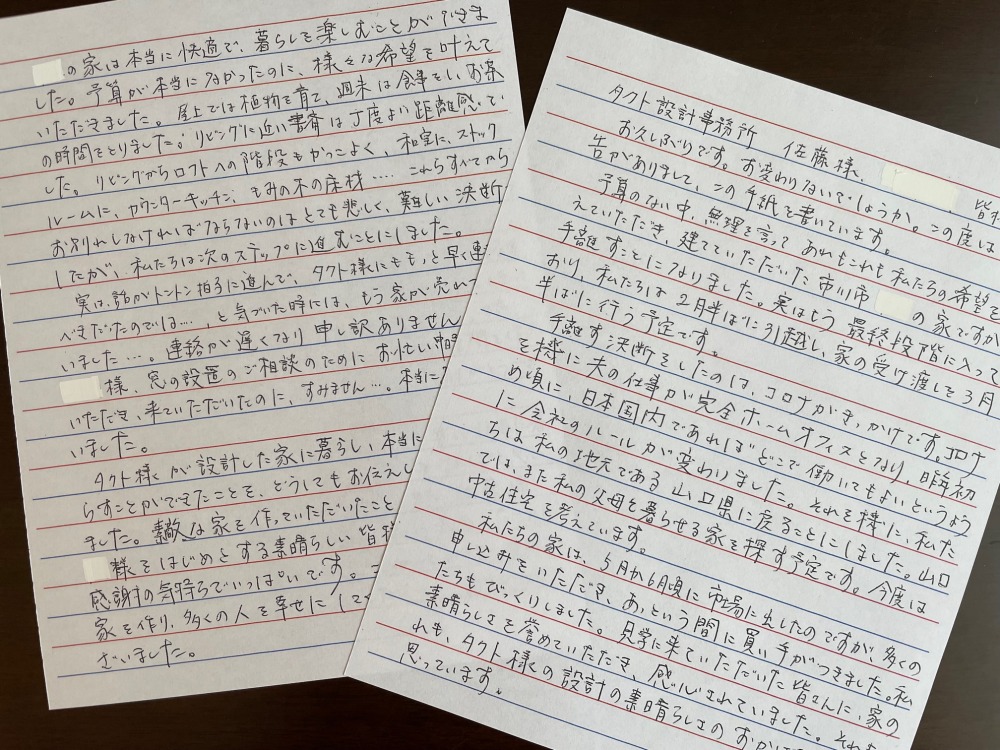 タクト設計事務所 佐藤様、 皆様
お久しぶりです。お変わりないでしょうか。この度は
告がありまして、この手紙を書いています。
予算のない中、無理を言ってあれもこれも私たちの希望を
えていただき、建てていただいた市川市 の家ですが
手離すことになりました。実はもう最終段階に入って
おり、私たちは2月半ばに引越し、家の受け渡しを3月
半ばに行う予定です。
手離す決断をしたのは、コロナがきっかけです。コロナ
を機に夫の仕事が完全ホームオフィスとなり、昨年初
め頃に、日本国内であればどこで働いてもよいというよう
に会社のルールが変わりました。それを機に、私た
ちは私の地元である山口県に戻ることにしました。山口
では、また私の父母と暮らせる家を探す予定です。今度は
中古住宅を考えています。
私たちの家は、5月か6月頃に市場に出したのですが、多くの
申し込みをいただき、あっという間に買い手がつきました。私
たちもびっくりしました。見学に来ていただいた皆さんに、家の
素晴らしさを誉めていただき、感心されていました。それも
れも、タクト様の設計の素晴らしさのおかげ
思っています。
の家は本当に快適で、暮らしを楽しむことができま
した。予算が本当になかったのに、様々な希望を叶えて
いただきました。屋上では植物を育て、週末は食事をしいお茶
の時間をとりました。リビングに近い書斎は丁度よい距離感で
した。リビングからロフトへの階段もかっこよく、和室に、ストック
ルームに、カウンターキッチン、もみの木の床材‥‥これらすべてから
お別れしなければならないのはとても悲しく、難しい決断
でしたが、私たちは次のステップに進むことにしました。
実は、話がトントン拍子に進んで、タクト様にももっと早く連
べきだったのでは‥‥、と気づいた時には、もう家が売れて
いました…。連絡が遅くなり申し訳ありません
様、窓の設置のご相談のためにお忙しい中時
いただき、来ていただいたのに、すみません…。本当に
いました。
タクト様が設計した家に暮らし、本当に
らすことができたことを、どうしてもお伝えし
ました。素敵な家を作っていただいたこと
様をはじめとする素晴らしい皆様
感謝の気持ちでいっぱいです。
家を作り、多くの人を幸せにして
ざいました。